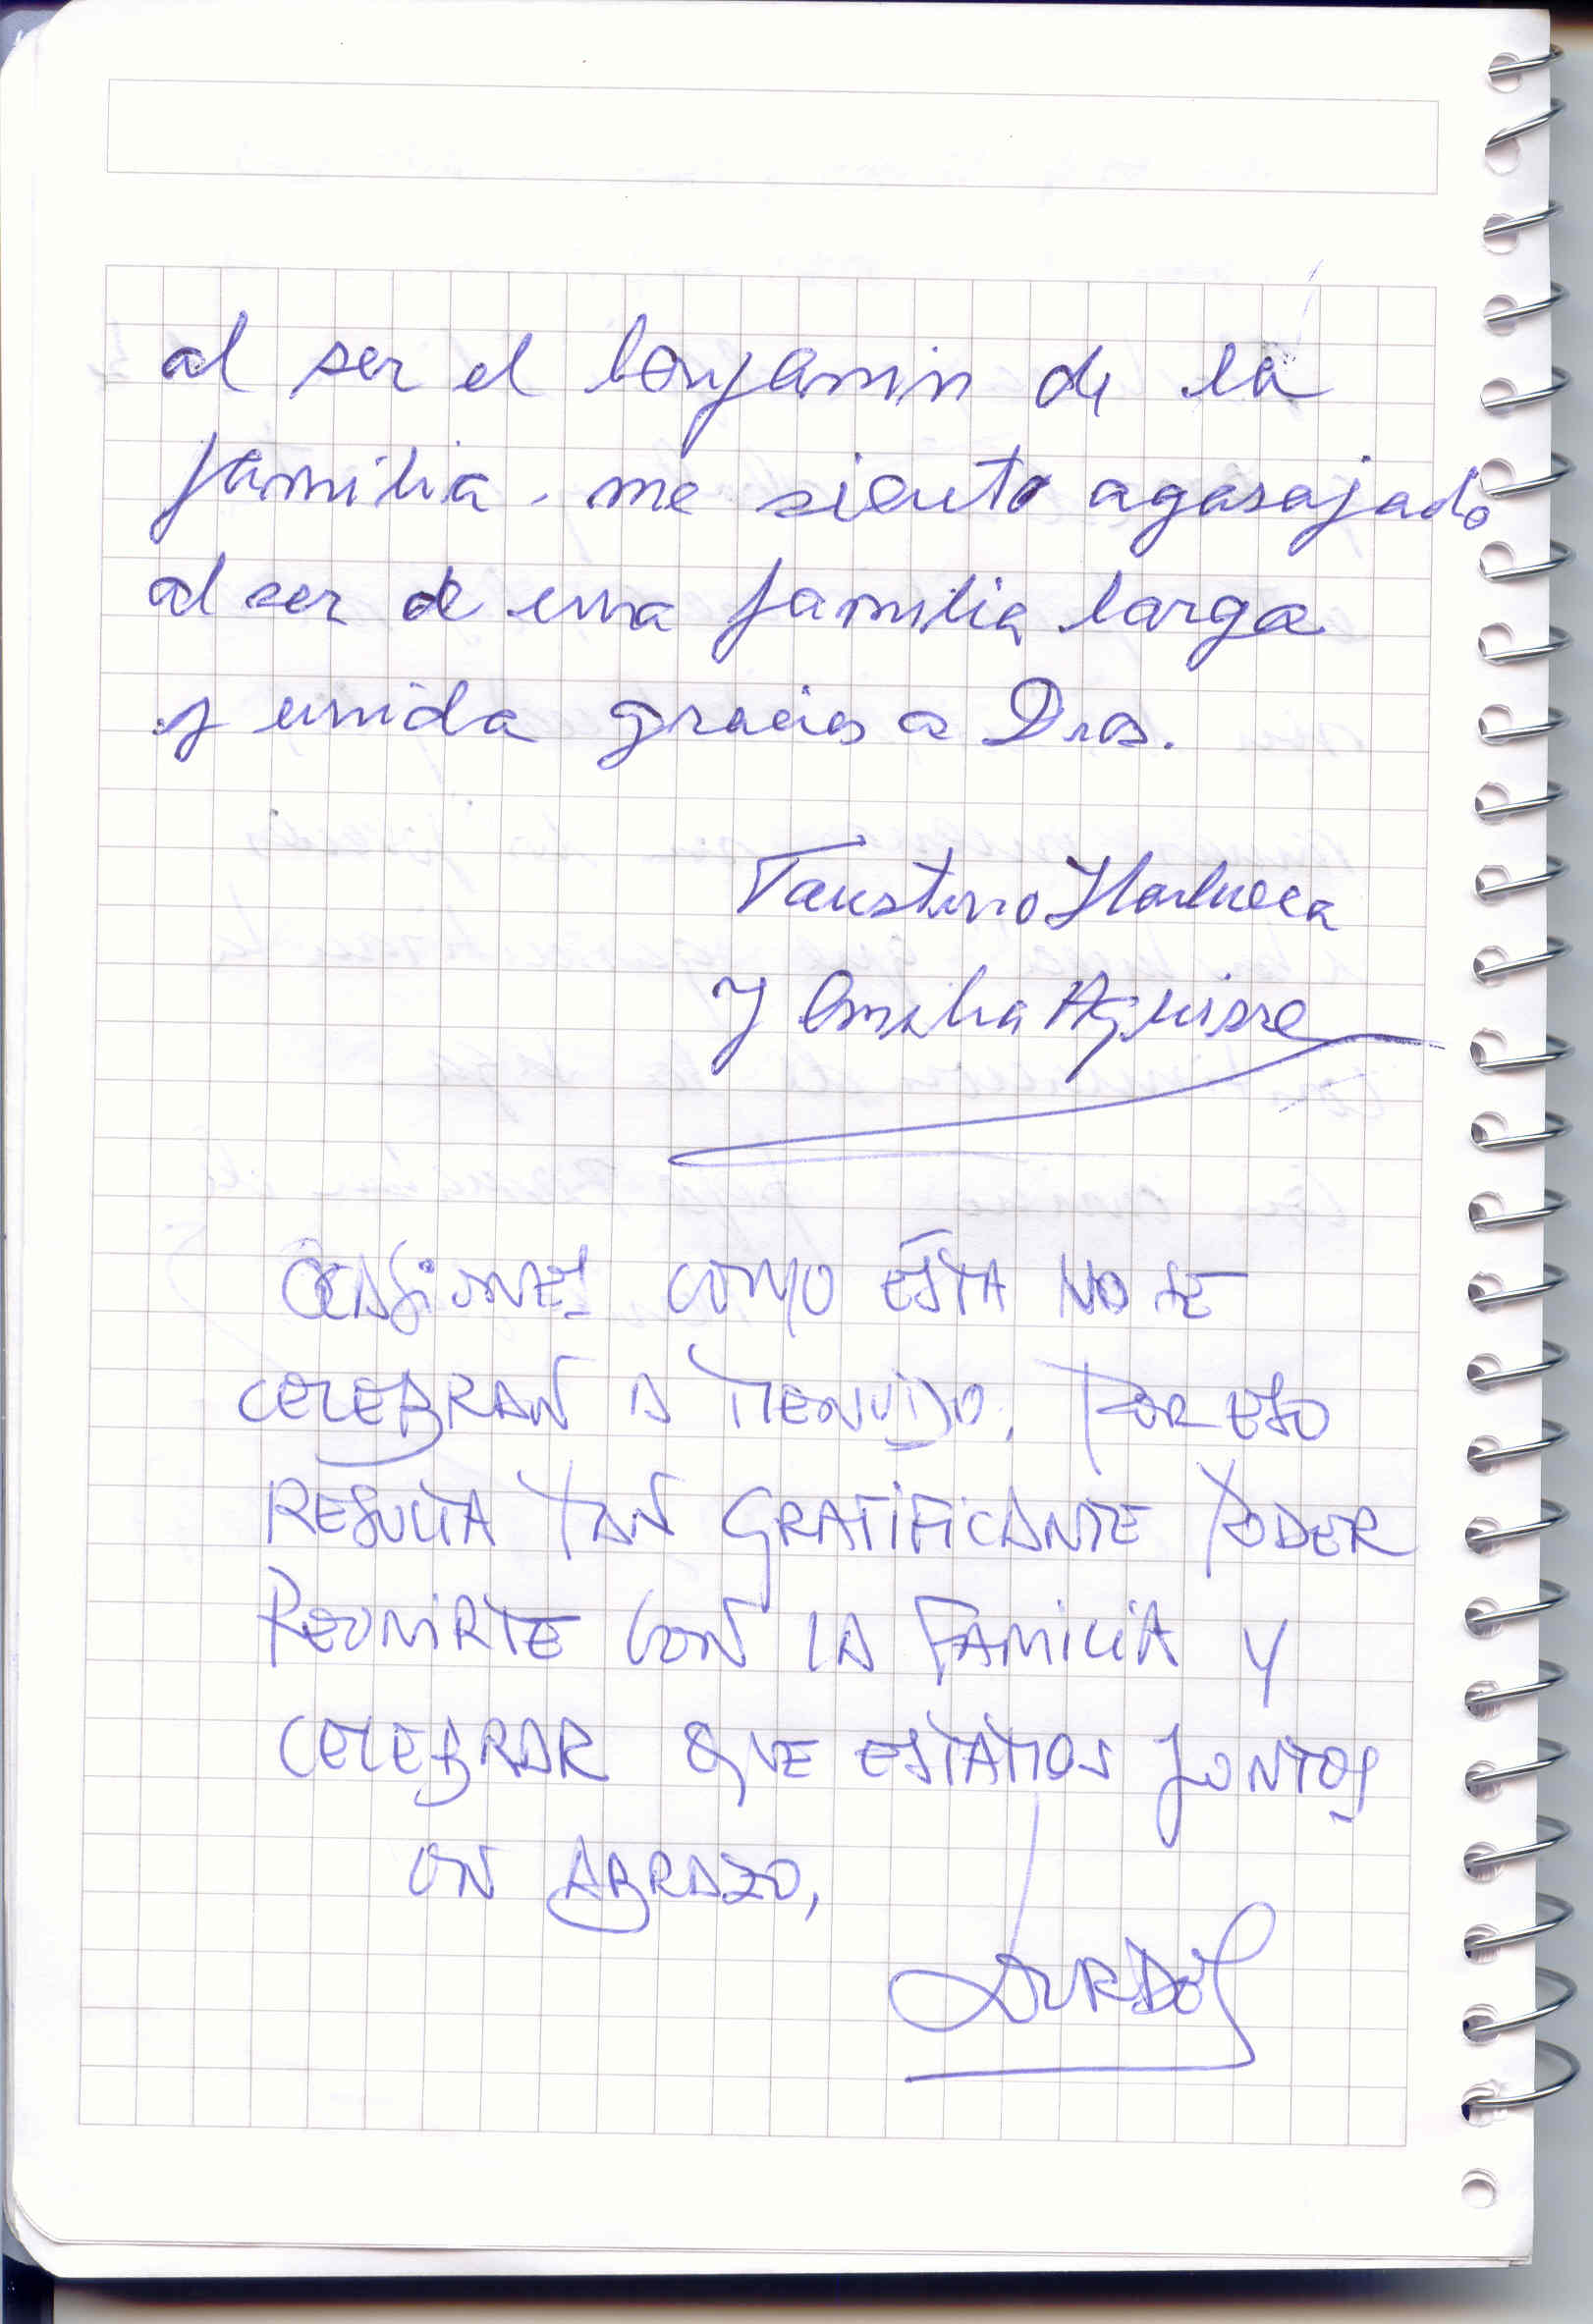 al ser el benjamin de la
familia. me siento agasajado
al ser de una familia larga
y unida gracias a Dios.
Faustino
y Emilia Aguirre
OCASIONES COMO ÉSTA NO SE
CELEBRAN A MENUDO. POR ESO
RESULTA TAN GRATIFICANTE PODER
REUNIRTE CON LA FAMILIA Y
CELEBRAR QUE ESTAMOS JUNTOS
UN ABRAZO,
LOURDES